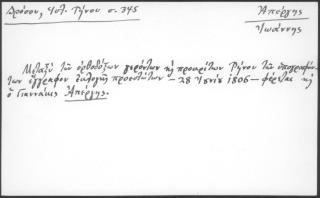 Δρόσου, Ἱστ. Τήνου σ. 345
Ἀπέργης
Ἰωάννης
Μεταξὺ τῶν ὀρθοδόξων γερόντων κὴ προκρίτων Τήνου τῶν ὑπογραψάν-
των ἔγγραφον ἐκλογῆς προεστώτων – 28 Ἰουνίου 1806 – φέρεται κὴ
ὁ Γιαννάκης Ἀπέργης.